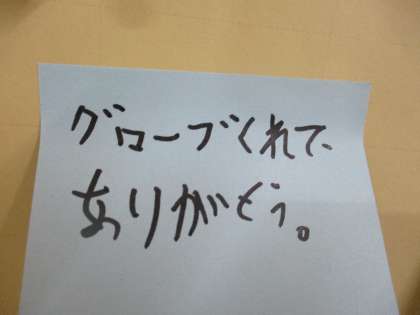 グローブくれて、
ありがとう。